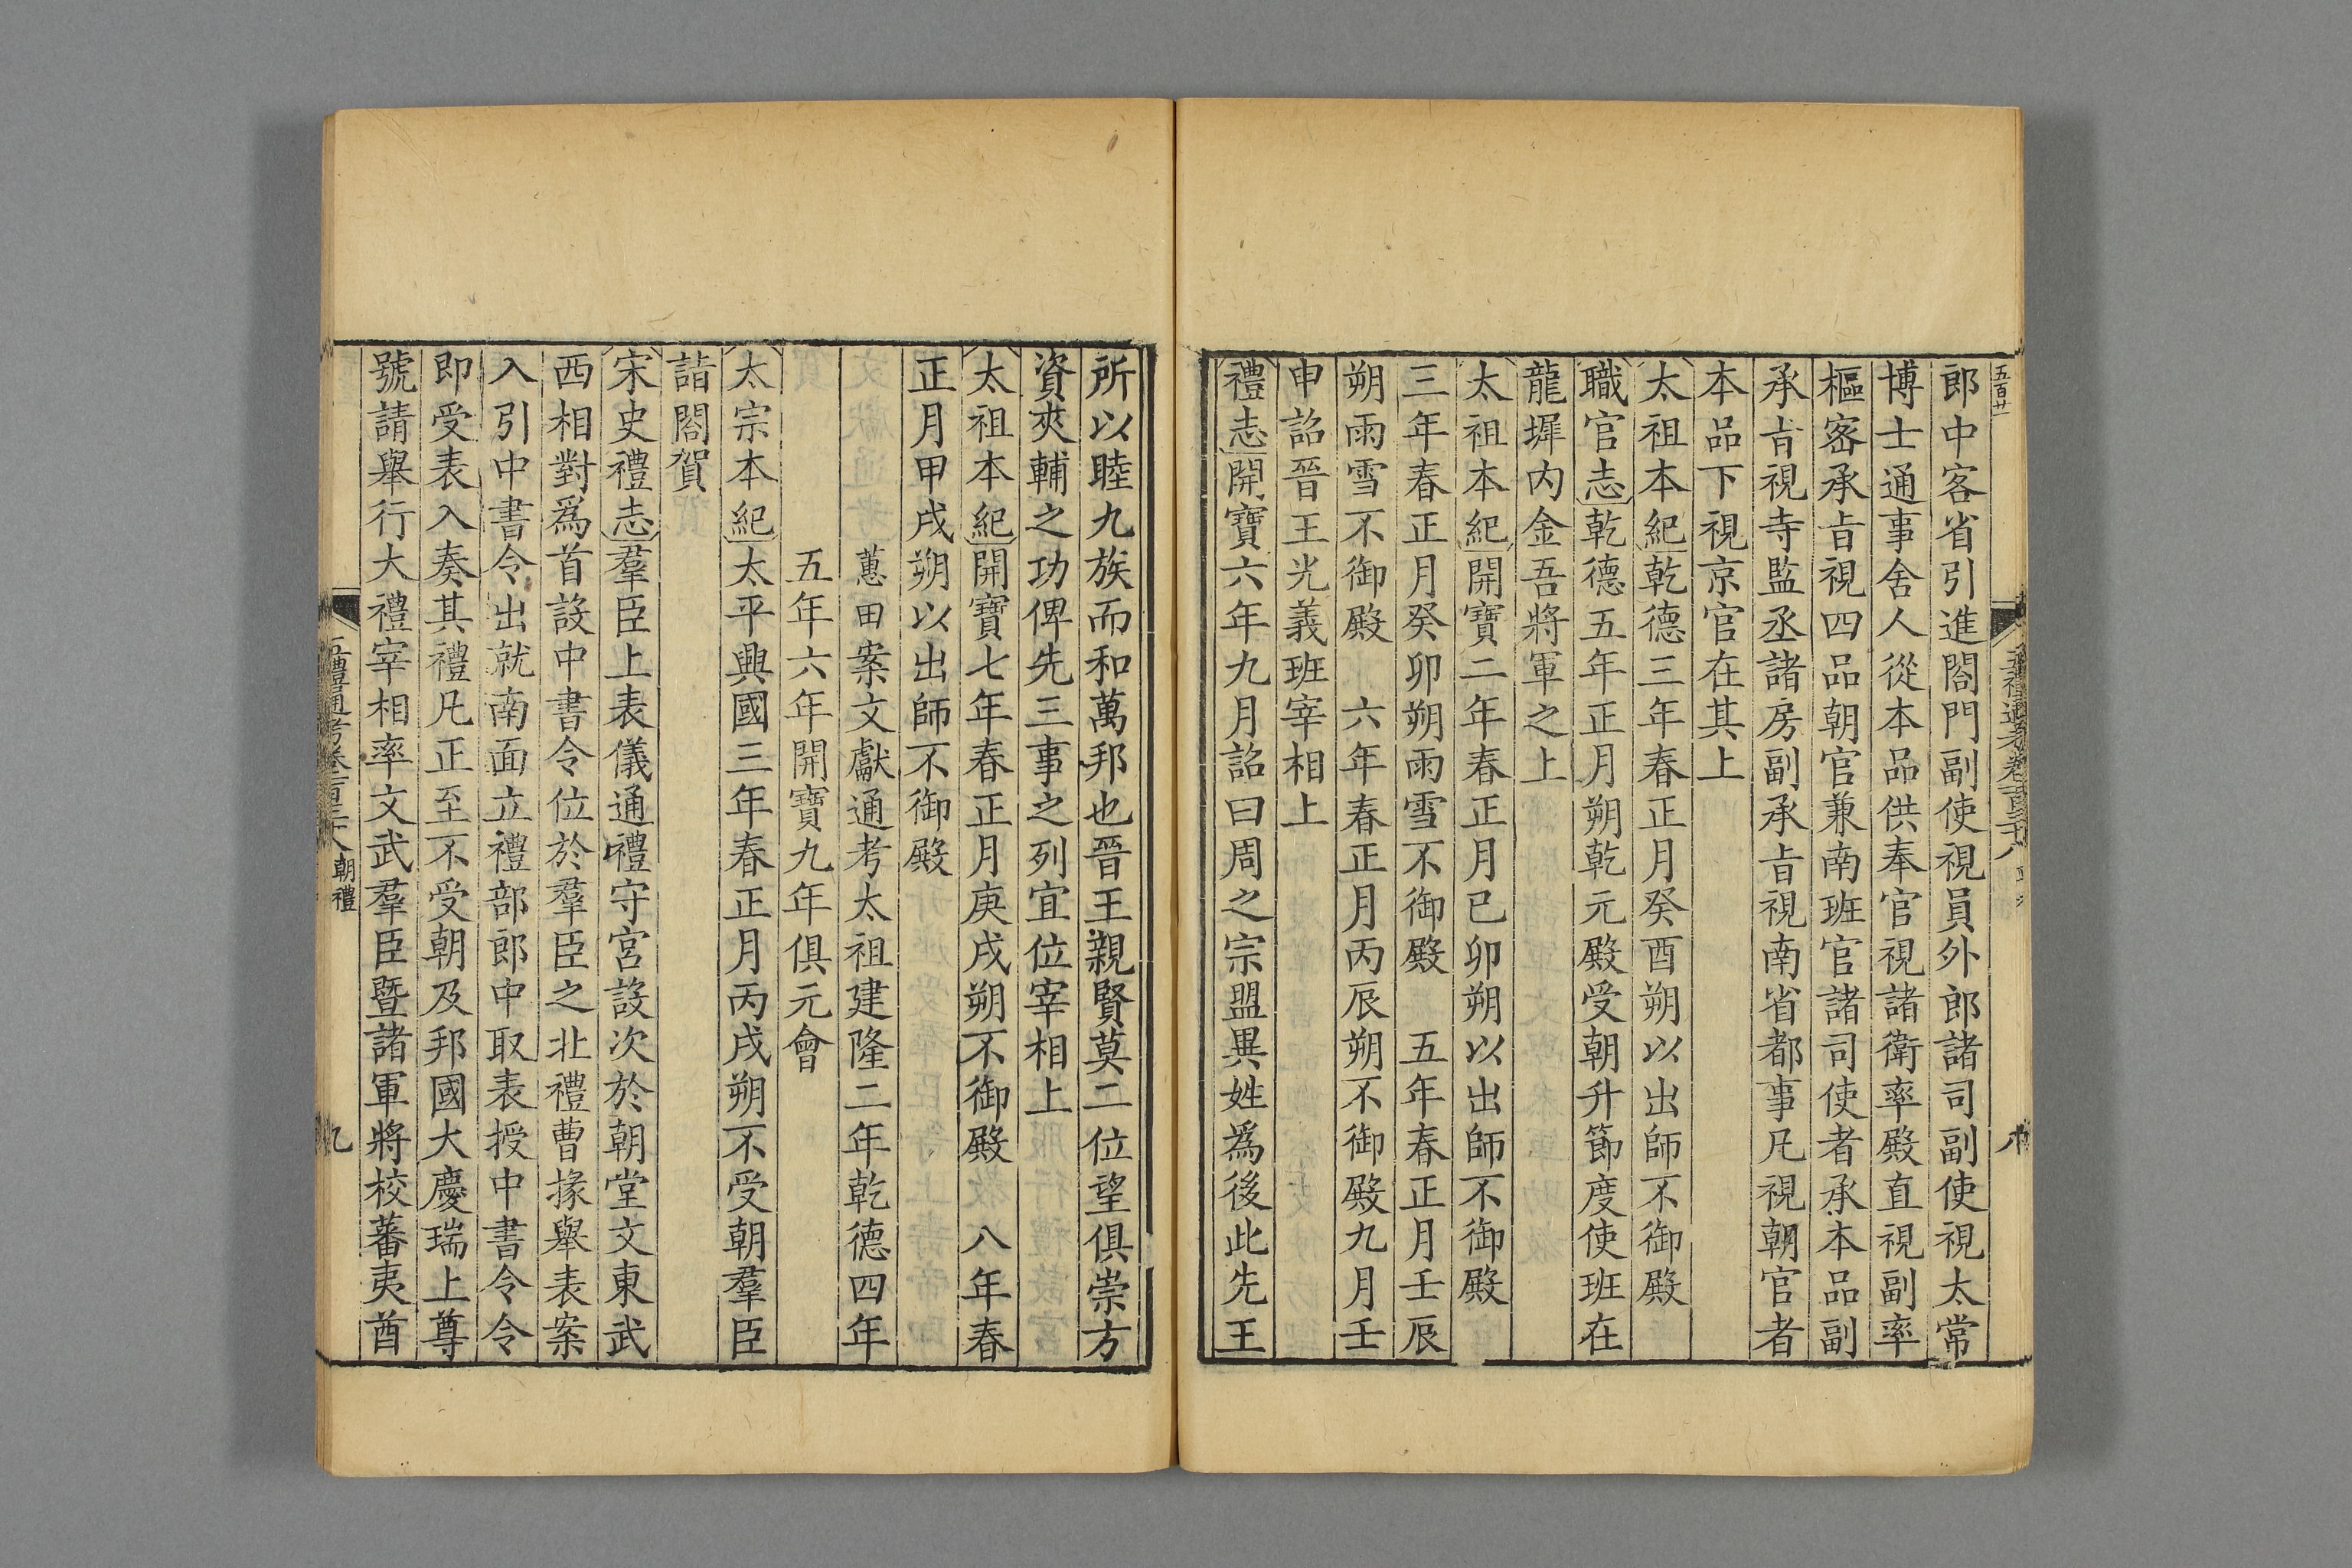 五百廿
郎中客省引進閤門副使視員外郎諸司副使視太常
博士通事舍人從本品供奉官視諸衛率殿直視副率
樞宻承㫖視四品朝官兼南班官諸司使者承本品副
承㫖視寺監丞諸房副承㫖視南省都事凡視朝官者
本品下視京官在其上
太祖本紀乾德三年春正月癸酉朔以出師不御殿
職官志乾德五年正月朔乾元殿受朝升節度使班在
龍墀内金吾將軍之上
太祖本紀開寶二年春正月已卯朔以出師不御殿
三年春正月癸卯朔雨雪不御殿　五年春正月壬辰
朔雨雪不御殿　六年春正月丙辰朔不御殿九月壬
申詔晉王光義班宰相上
禮志開寶六年九月詔曰周之宗盟異姓爲後此先王
所以睦九族而和萬邦也晉王親賢莫二位望俱崇方
資夾輔之功俾先三事之列宜位宰相上
太祖本紀開寶七年春正月庚戌朔不御殿　八年春
正月甲戌朔以出師不御殿
蕙田案文獻通考太祖建隆二年乾德四年
五年六年開寶九年俱元會
太宗本紀太平興國三年春正月丙戌朔不受朝羣臣
詣閤賀
宋史禮志羣臣上表儀通禮守宮設次於朝堂文東武
西相對爲首設中書令位於羣臣之北禮曹掾舉表案
入引中書令出就南面立禮部郎中取表授中書令令
即受表入奏其禮凡正至不受朝及邦國大慶瑞上尊
號請舉行大禮宰相率文武羣臣暨諸軍將校蕃夷酋
禮通考卷百三十八 朝禮
九